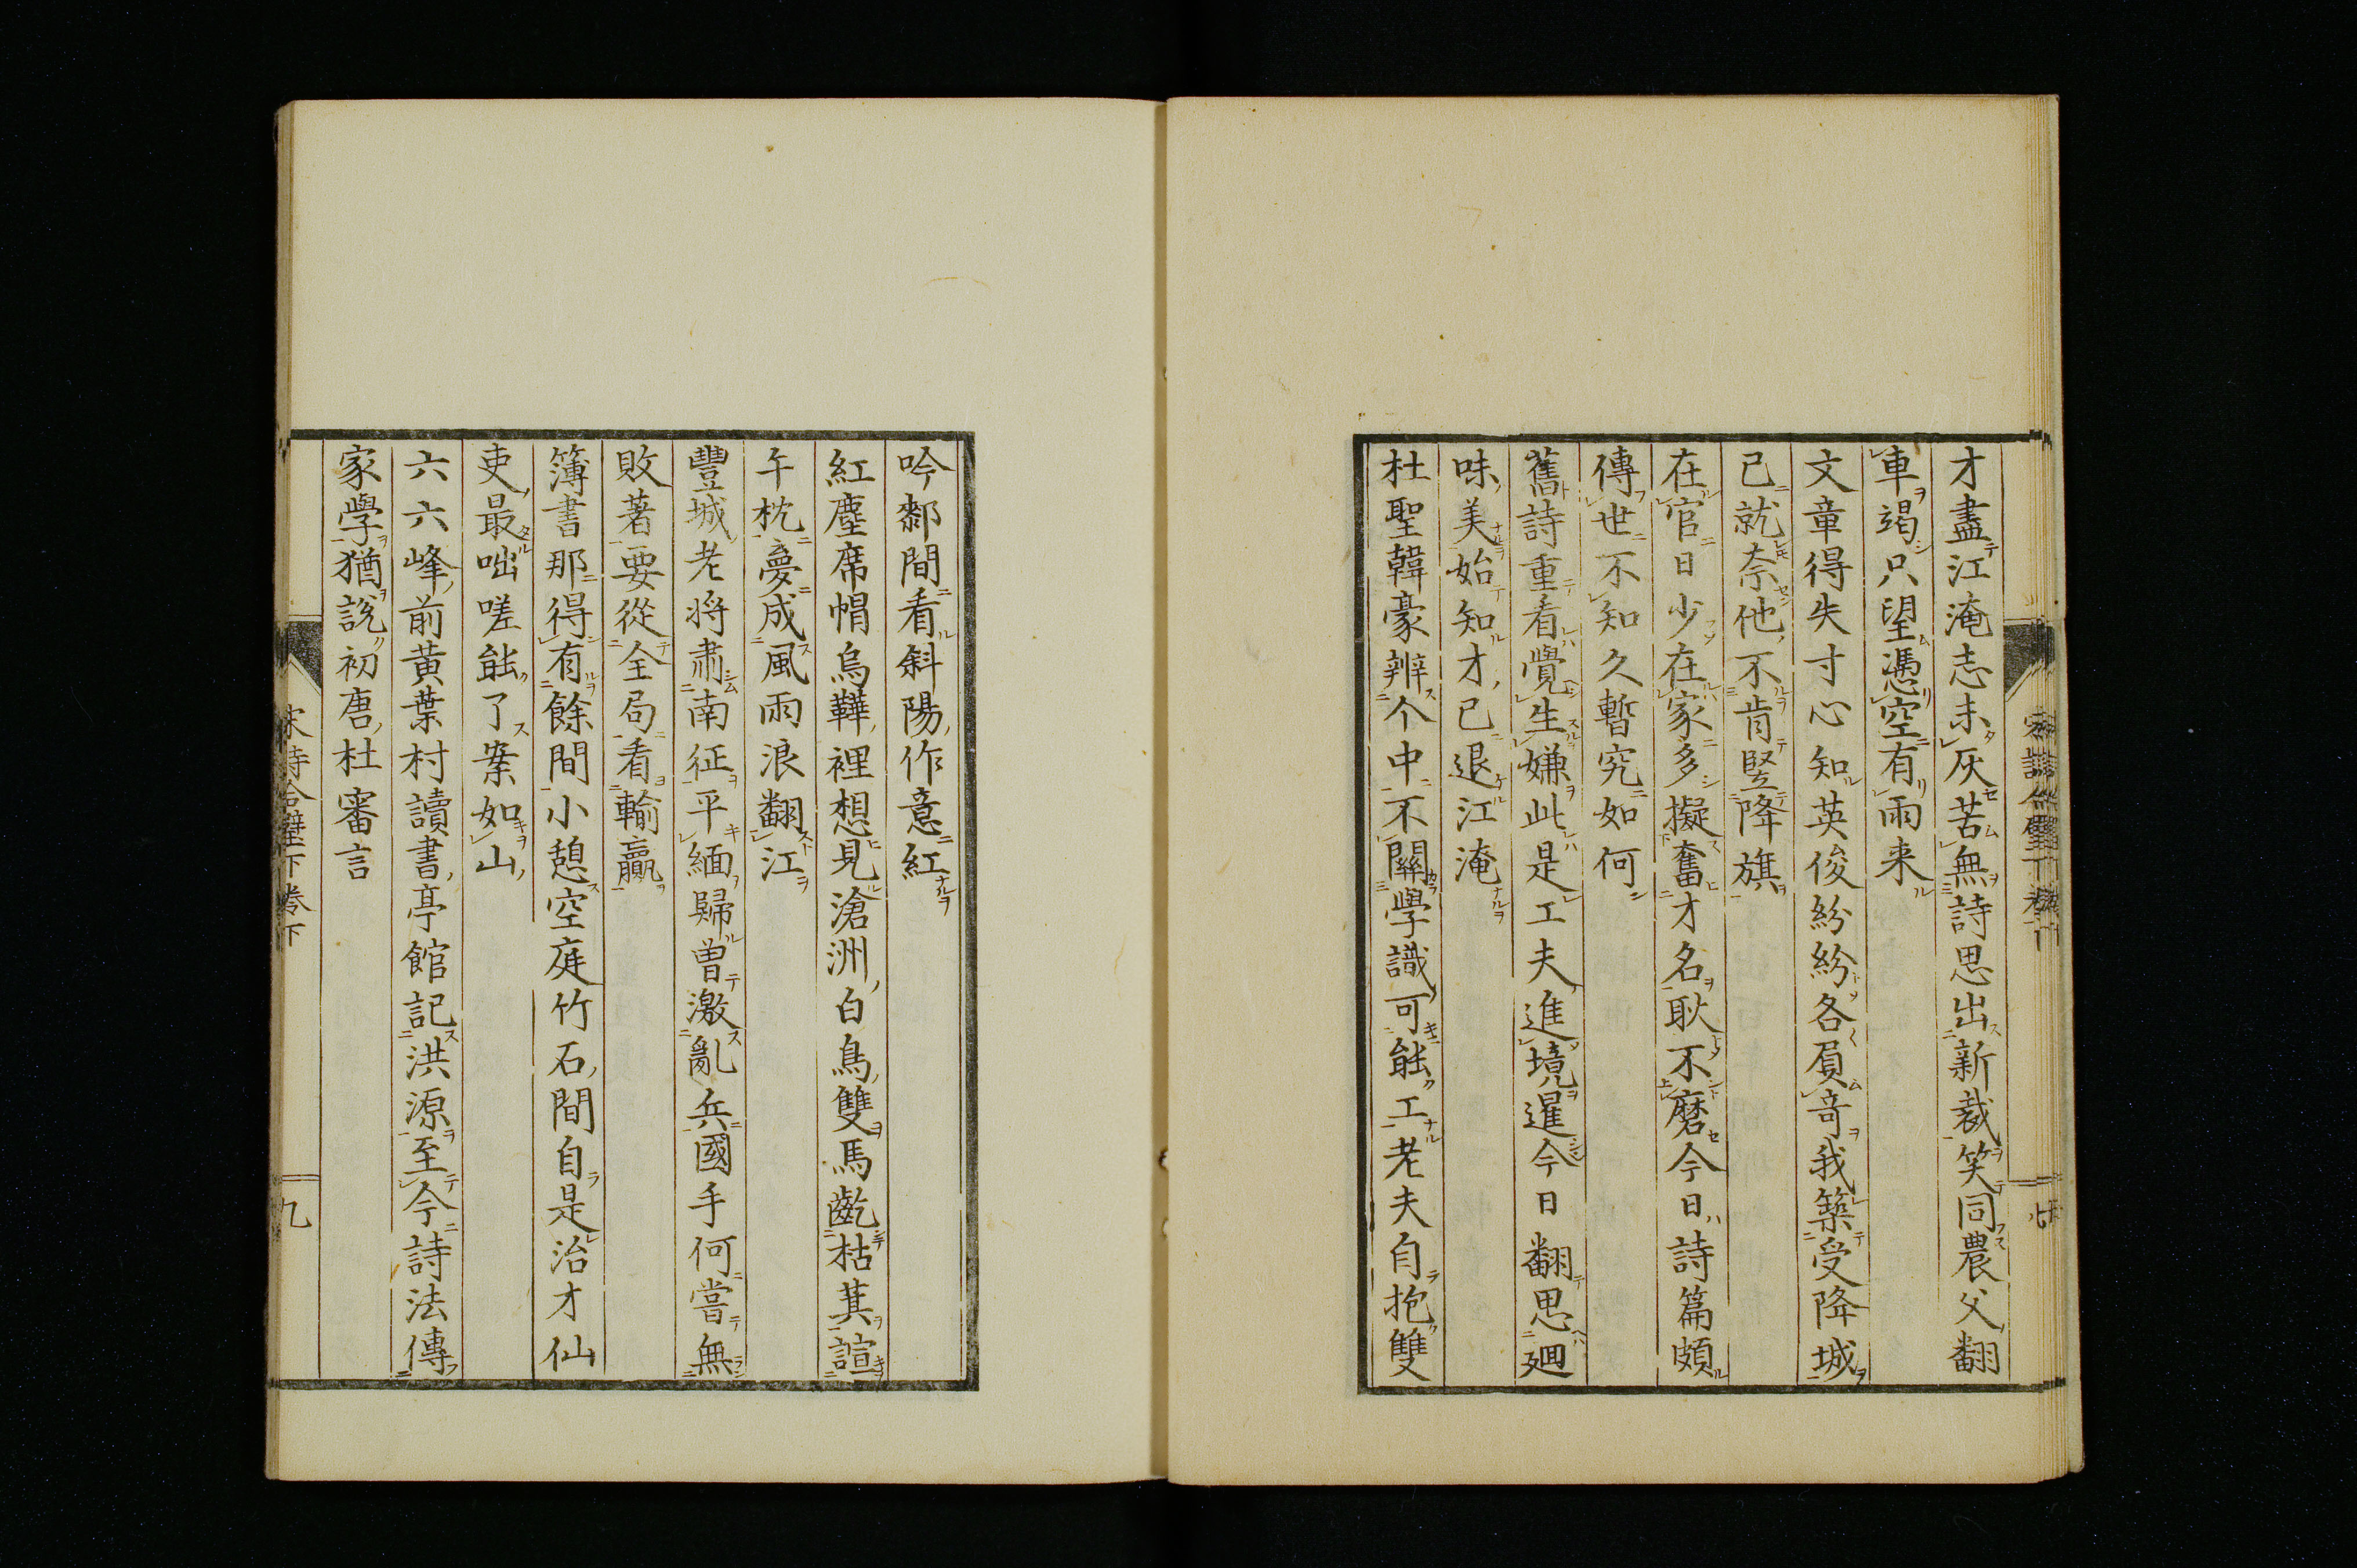 才盡江淹志未灰苦無詩思出新裁笑同農父翻
車竭只望憑空有雨来
文章得失寸心知英俊紛紛各負奇我築受降城
已就奈他不肯竪降旗
在官日少在家多擬奮才名耿不磨今日詩篇頗
傳世不知久暫究如何
舊詩重看覺生嫌此是工夫進境暹今日翻思廻
味美始知才已退江淹
杜聖韓豪辨个中不關學識可能工老夫自抱雙
吟鄰間看斜陽作意紅
紅塵席帽烏鞾裡想見滄洲白鳥雙馬齕枯萁諠
午枕夢成風雨浪翻江
豐城老将肅南征平緬歸曽激亂兵國手何嘗無
敗著要從全局看輸贏
簿書那得有餘間小憩空庭竹石間自是治才仙
吏最咄嗟能了案如山
六六峰前黄葉村讀書亭館記洪源至今詩法傳
家學猶說初唐杜審言
宋詩合璧下巻下
九